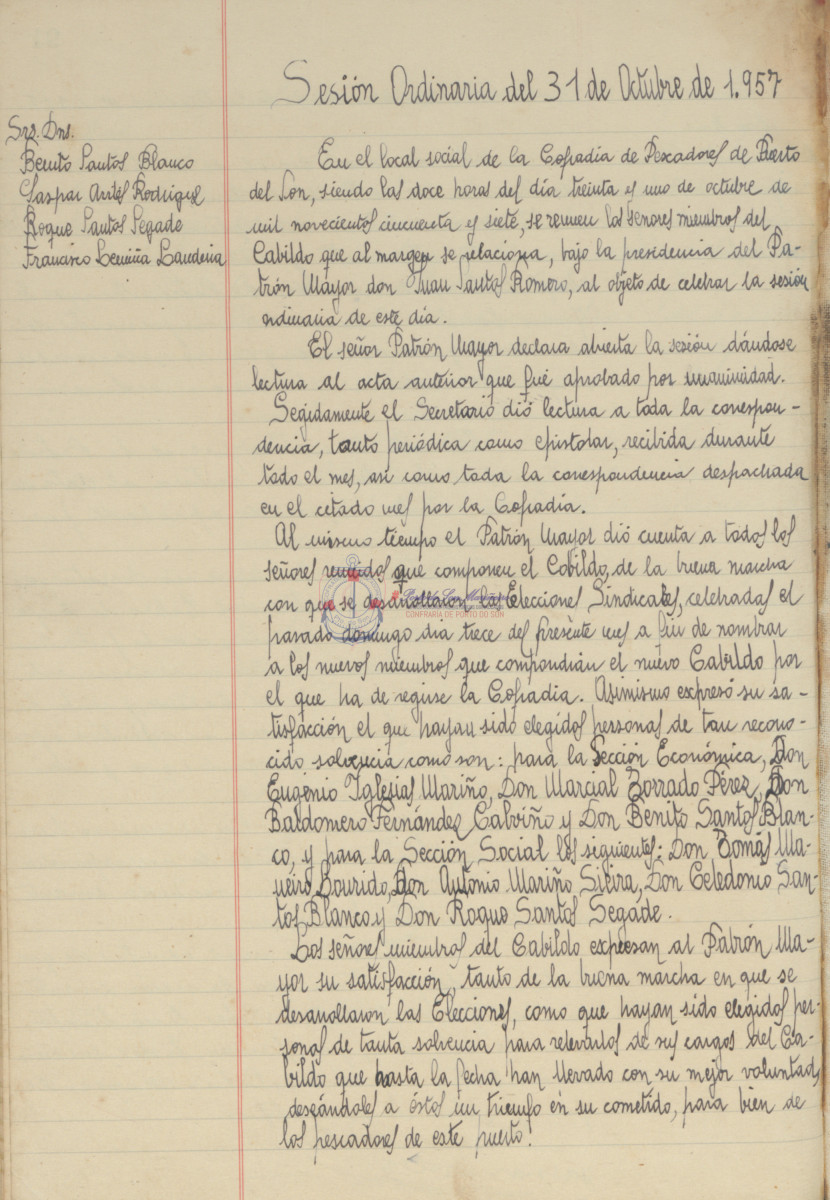 Sesión Ordinaria del 31 de Octubre de 1.957
Srs. Dns.
Benito Santos Blanco
Gaspar Rodríguez
Roque Santos Segade
Francisco
En el local social de la Cofradia de Pescadores de Puerto
del Son, siendo las doce horas del día treinta y uno de octubre de
mil novecientos cincuenta y siete, se reunen los señores miembros del
Cabildo que al margen se relaciona, bajo la presidencia del Pa-
trón Mayor don Juan Santos Romero, al objeto de celebrar la sesión
ordinaria de este día.
El señor Patrón Mayor declara abierta la sesión dándose
lectura al acta anterior que fué aprobado por unanimidad.
Segidamente el Secretario dió lectura a toda la correspon-
dencia, tanto periódica como epistolar, recibida durante
todo el mes, asi como toda la correspondencia despachada
en el citado mes por la Cofradía.
Al mismo tiempo el Patrón Mayor dió cuenta a todos los
señores reunidos que componen el Cabildo, de la buena marcha
con que se desarrollaron las Elecciones Sindicales, celebradas el
pasado domingo dia trece del presente mes a fin de nombrar
a los nuevos miembros que compondrán el nuevo Cabildo por
el que ha de regirse la Cofradia. Asimismo expresó su sa-
tisfacción el que hayan sido elegidos personas de tan recono-
cido solvencia como son: para la Sección Económica, Don
Eugenio Iglesias Mariño, Don Marcial Torrado Pérez, Don
Baldomero Fernández Calviño y Don Benito Santos Blan-
co, y para la Sección Social los siguientes: Don Tomás Ma-
neiro Lourido, Don Antonio Mariño Sieira, Don Celedonio San-
tos Blanco y Don Roque Santos Segade.
Los señores miembros del Cabildo expresan al Patrón Ma-
yor su satisfacción, tanto de la buena marcha en que se
desarrollaron las Elecciones, como que hayan sido elegidos per-
sonas de tanta solvencia para relevarlos de sus cargos del Ca-
bildo que hasta la fecha han llevado con su mejor voluntad,
deseándoles a éstos un triunfo en su cometido, para bien de
los pescadores de este puerto.
CONFRARÍA DE PORTO DO SON